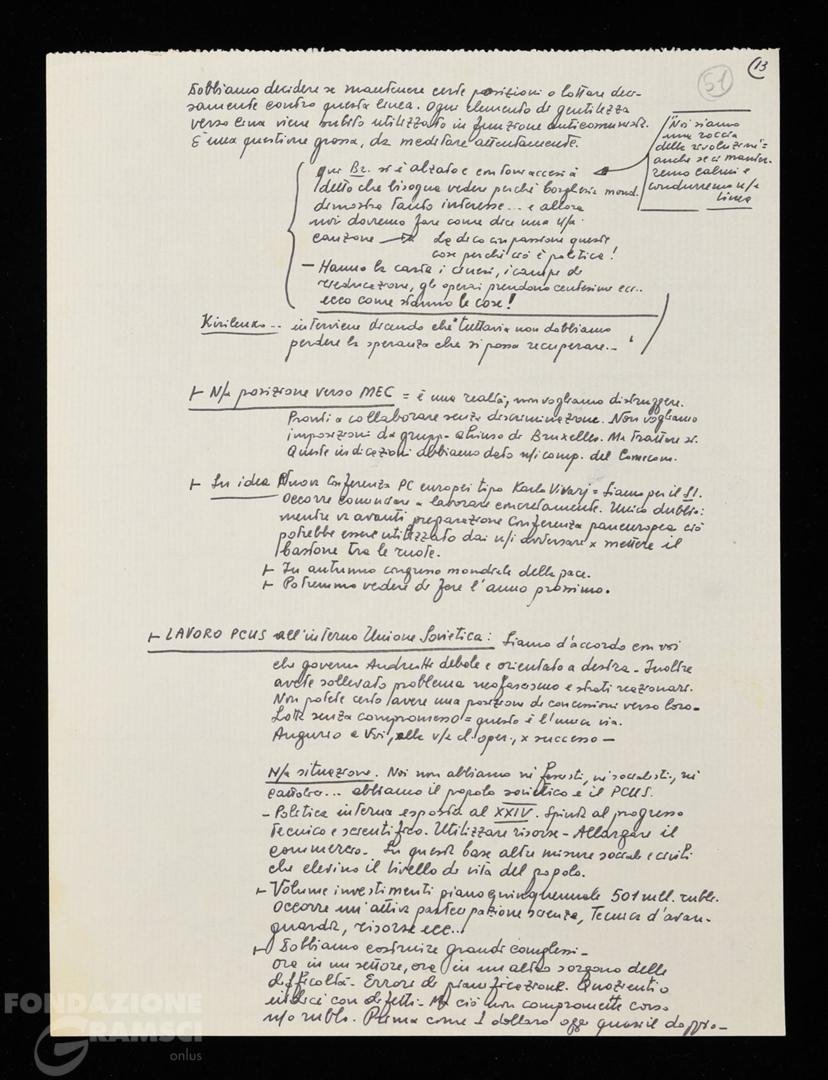 13
51
Dobbiamo decidere se mantenere certe posizioni o lottare deci-
samente contro questa linea. Ogni elemento di gentilezza
verso Cina viene subito utilizzato in funzione anticomunista.
È una questione grossa, da meditare attentamente.
"Noi siamo
una roccia
della rivoluzione"=
anche se ci manter-
remo calmi e
condurremo n/a
linea
qui Br. si è alzato e con tono acceso ha
detto che bisogna vedere perché borghesia mond.
dimostra tanto interesse... e allora
noi dovremo fare come dice una n/a
canzone → Le dico con passione queste
cose perché ciò è politica!
- Hanno la carta i cinesi, i campi di
rieducazione, gli operai prendono centesimi ecc..
ecco come stanno le cose!
Kirilenko... interviene dicendo che "tuttavia non dobbiamo
perdere la speranza che si possa recuperare..."
+ N/a posizione verso MEC = è una realtà, non vogliamo distruggere.
Pronti a collaborare senza discriminazione. Non vogliamo
imposizioni da gruppo chiuso di Bruxelles. Ma trattare si.
Queste indicazioni abbiamo dato n/i comp. del Comecon.
+ Su idea Nuova Conferenza PC europei tipo Karlo Vivarj = siamo per il SI.
Occorre cominciare a lavorare concretamente. Unico dubbio:
mentre va avanti preparazione Conferenza paneuropea ciò
potrebbe essere utilizzato dai n/i avversari x mettere il
bastone tra le ruote.
+ In autunno congresso mondiale della pace.
+ Potremmo vedere di fare l'anno prossimo.
+ LAVORO PCUS all'interno Unione Sovietica: Siamo d'accordo con voi
che governo Andreotti debole e orientato a destra - Inoltre
avete sollevato problema neofascismo e strati reazionari.
Non potete certo avere una posizione di concessioni verso loro-
Lotta senza compromesso = questo è l'unica via.
Augurio a Voi, alla v/a cl. oper., x successo -
N/a situazione. Noi non abbiamo né fascisti, né socialisti, né
cattolici... abbiamo il popolo sovietico e il PCUS.
- Politica interna esposta al XXIV. Spinta al progresso
tecnico e scientifico. Utilizzare risorse - Allargare il
commercio. Su questa base altre misure sociali e civili
che elevino il livello di vita del popolo.
+ Volume investimenti piano quinquennale 501 mil. rubli.
Occorre un'attiva partecipazione scienza, Tecnica d'avan-
guardia, risorse ecc...
+ Dobbiamo costruire grandi complessi -
ora in un settore, ora in un altro sorgono delle
difficoltà - Errori di pianificazione.
indici con difetti - Ma ciò non compromette corso
n/o rublo. Prima come 1 dollaro oggi quasi il doppio -
FONDAZIONE
GRAMSCI
onlus